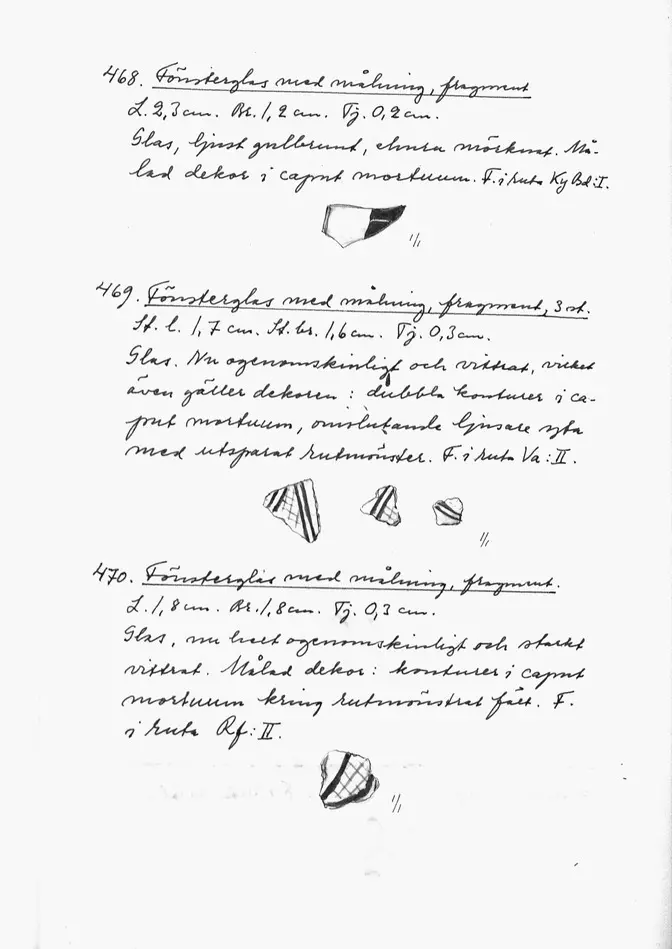 468. Fönsterglas med målning, fragment
L. 2,3 cm. Br. 1,2 cm. Tj. 0,2 cm.
Glas, ljust gulbrunt, ehuru mörknat. Må-
lad dekor i caput mortuum. F. i ruta Ky Bd:I.
1/1
469. Fönsterglas med målning, fragment, 3 st.
St. l. 1,7 cm. St. br. 1,6 cm. Tj. 0,3 cm.
Glas. Nu ogenomskinligt och vittrat, vilket
även gäller dekoren: dubbla konturer i ca-
put mortuum, omslutande ljusare yta
med utsparat rutmönster. F. i ruta Va:II.
1/1
470. Fönsterglas med målning, fragment.
L. 1,8 cm. Br. 1,8 cm. Tj. 0,3 cm.
Glas, nu helt ogenomskinligt och starkt
vittrat. Målad dekor: konturer i caput
mortuum kring rutmönstrat fält. F.
i ruta Rf:II.
1/1